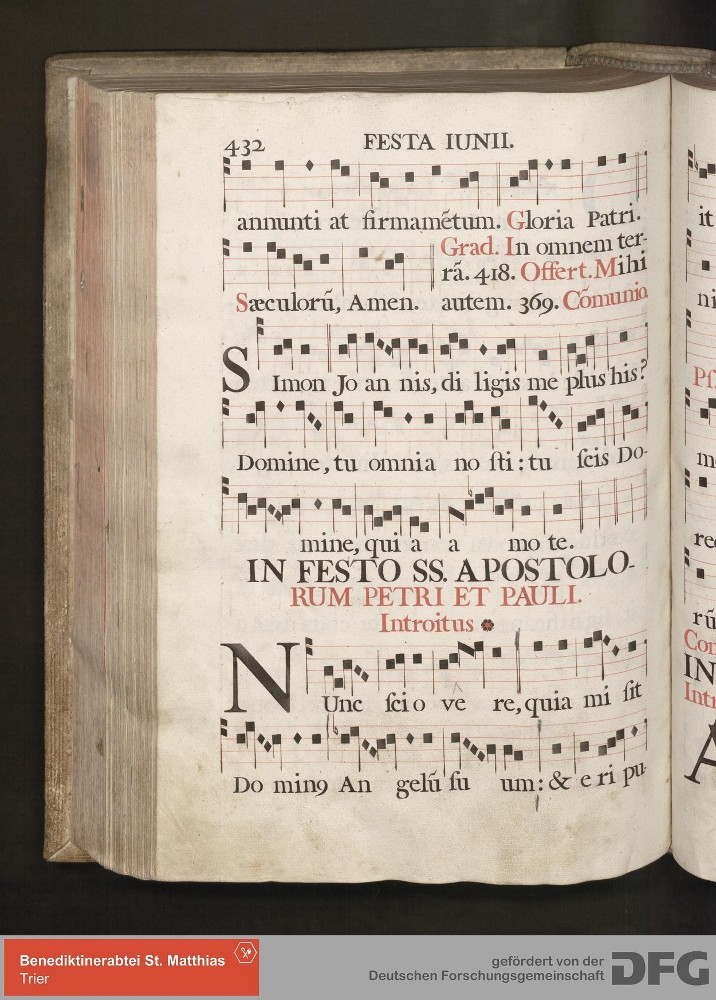 432 FESTA IUNII.
annunti at firmamẽtum. Gloria Patri.
Grad. In omnem ter-
rã. 418. Offert. Mihi
Sæculorũ, Amen. autem. 369. Cõmunio
SImon Jo an nis, di ligis me plus his?
Domine, tu omnia no sti: tu scis Do-
mine, qui a a mo te.
IN FESTO SS. APOSTOLO-
RUM PETRI ET PAULI.
Introitus
NUnc scio ve re, quia mi sit
Do minꝯ An gelũ su um: & e ri pu-
it
ni
Ps.
m
re
rũ
Con
IN
Intr
A
Benediktinerabtei St. Matthias
Trier
gefördert von der
Deutschen Forschungsgemeinschaft DFG